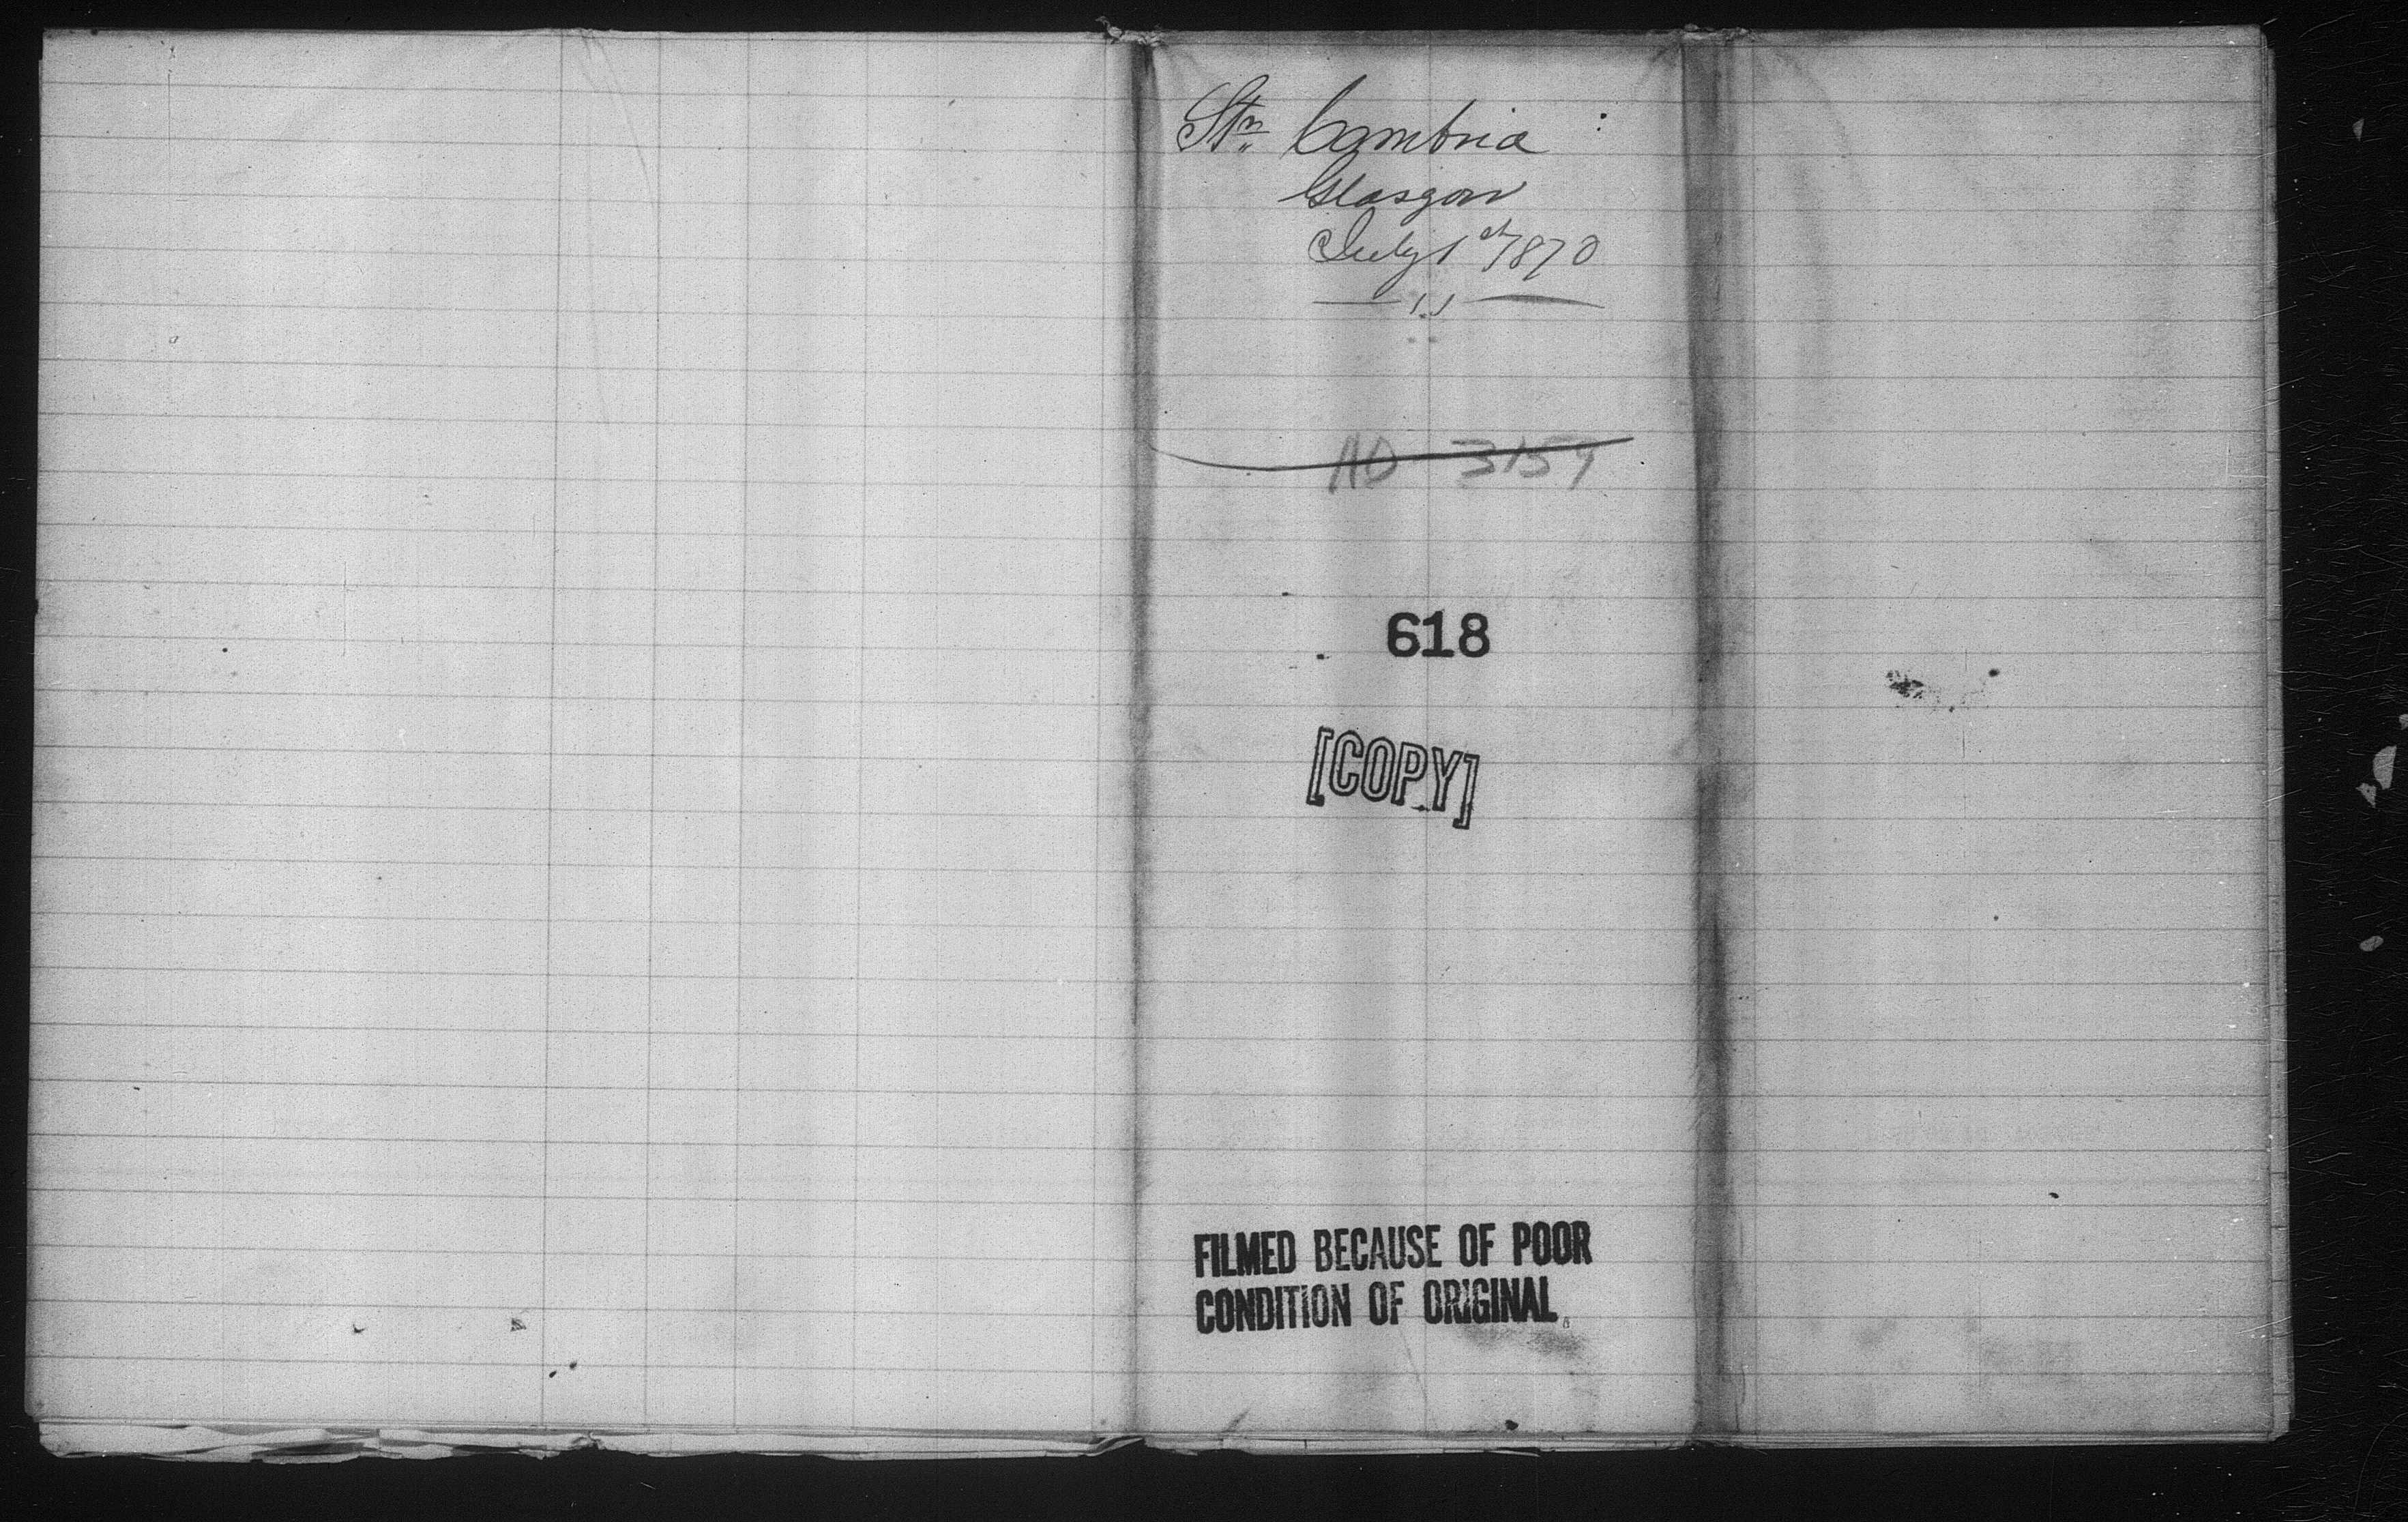 Stm. Cambria
Glasgow
July 1st 1870
618
[COPY]
FILMED BECAUSE OF POOR
CONDITION OF ORIGINAL